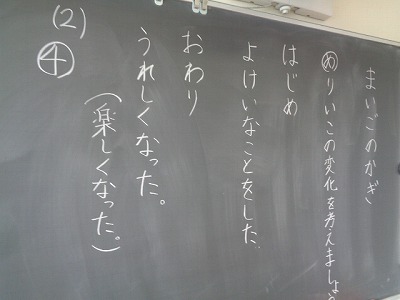 まいごのかぎ
めりいこの変化を考えましょう
はじめ
よけいなことをした
おわり
うれしくなった。
(楽しくなった。)
(2)
④